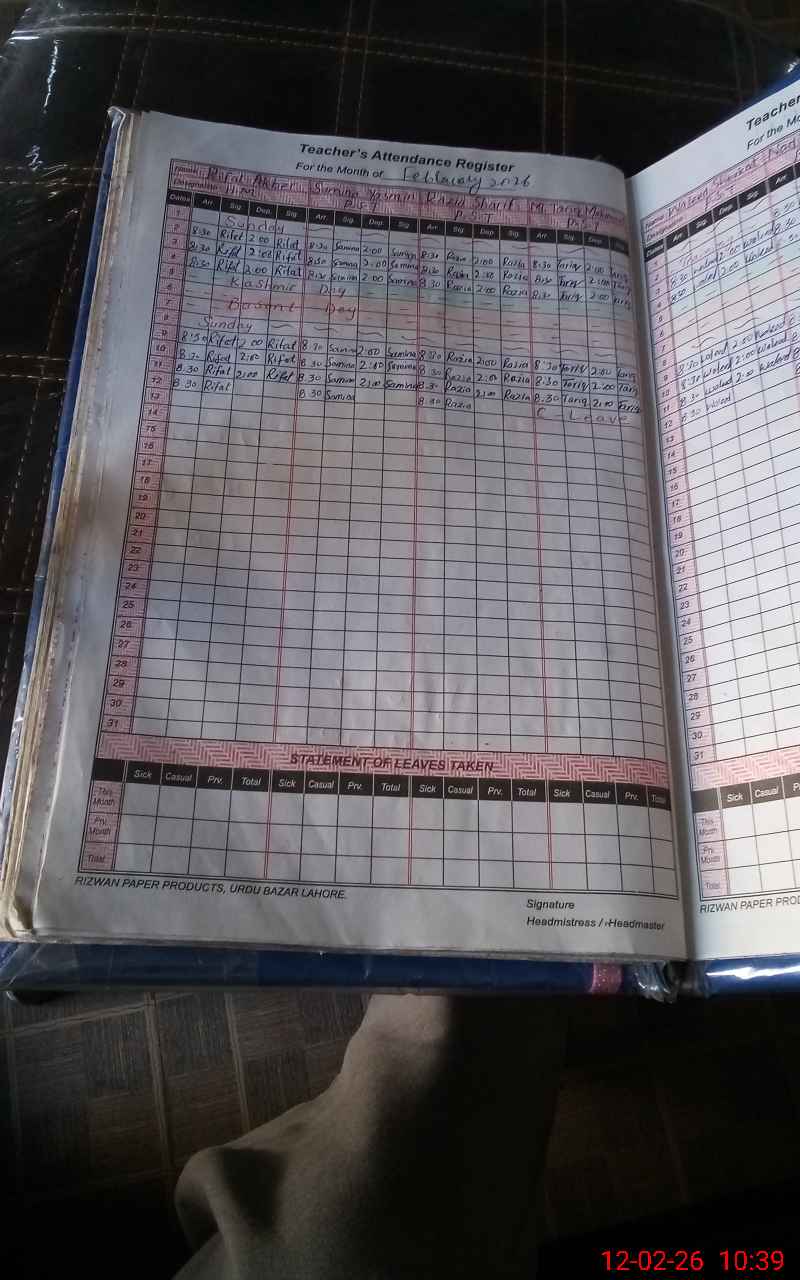 Teacher's Attendance Register
For the Month of February 2026
Name Rifat Akhter Samina Yasmin Razia Sharif M. Tariq Mehmood
Designation H.M P.S.T P.S.T P.S.T
Dates Arr. Sig. Dep. Sig. Arr. Sig. Dep. Sig. Arr. Sig. Dep. Sig. Arr. Sig. Dep. Sig.
1 Sunday
2 8:30 Rifat 2:00 Rifat 8:30 Samina 2:00 Samina 8:30 Razia 2:00 Razia 8:30 Tariq 2:00 Tariq
3 8:30 Rifat 2:00 Rifat 8:30 Samina 2:00 Samina 8:30 Razia 2:00 Razia 8:30 Tariq 2:00 Tariq
4 8:30 Rifat 2:00 Rifat 8:30 Samina 2:00 Samina 8:30 Razia 2:00 Razia 8:30 Tariq 2:00 Tariq
5 Kashmir Day
6
7 Basant Day
8 Sunday
9 8:30 Rifat 2:00 Rifat 8:30 Samina 2:00 Samina 8:30 Razia 2:00 Razia 8:30 Tariq 2:00 Tariq
10 8:30 Rifat 2:00 Rifat 8:30 Samina 2:00 Samina 8:30 Razia 2:00 Razia 8:30 Tariq 2:00 Tariq
11 8:30 Rifat 2:00 Rifat 8:30 Samina 2:00 Samina 8:30 Razia 2:00 Razia 8:30 Tariq 2:00 Tariq
12 8:30 Rifat 8:30 Samina 8:30 Razia C Leave
13
14
15
16
17
18
19
20
21
22
23
24
25
26
27
28
29
30
31
STATEMENT OF LEAVES TAKEN
Sick Casual Prv. Total Sick Casual Prv. Total Sick Casual Prv. Total Sick Casual Prv. Total
This Month
Prv. Month
Total
RIZWAN PAPER PRODUCTS, URDU BAZAR LAHORE.
Signature
Headmistress / Headmaster
Teacher
For the Mo
Name Waleed
Designation P.S.T
Dates Arr. Sig. Dep. Sig. Arr.
1
2
3 8:30 Waleed 2:00 Waleed
4 8:30 Waleed 2:00 Waleed
5
6
7
8
9 8:30 Waleed 2:00 Waleed
10 8:30 Waleed 2:00 Waleed
11 8:30 Waleed 2:00 Waleed
12 8:30 Waleed
13
14
15
16
17
18
19
20
21
22
23
24
25
26
27
28
29
30
31
Sick Casual
This Month
Prv. Month
Total
RIZWAN PAPER PROD
12-02-26 10:39